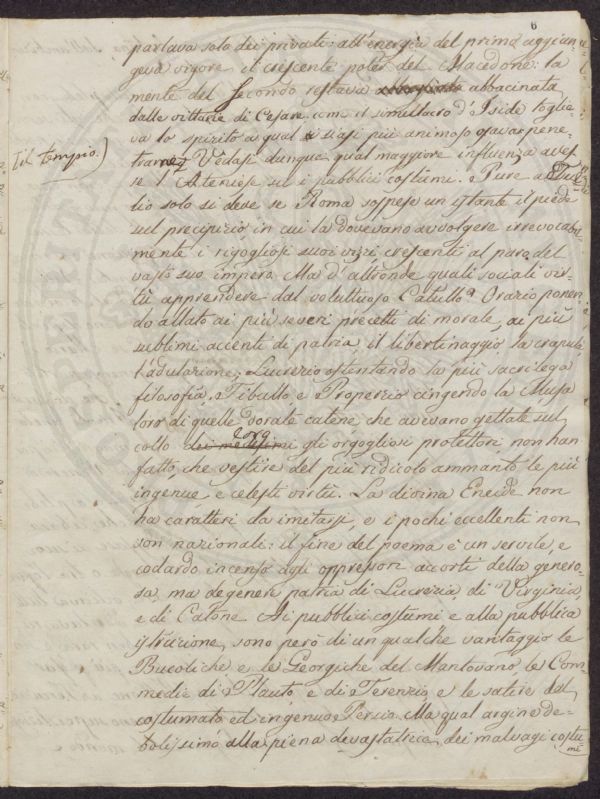 6
parlava solo dei privati: all'energia del primo aggiun-
geva vigore il crescente poter del Macedone: la
mente del secondo restava abbacinata
dalle vittorie di Cesare come il simulacro d'Iside toglie-
va lo spirito a qual siasi più animoso osavar pene-
il tempio.)
trarne Vedasi dunque qual maggiore influenza aves
se l'Ateniese su i pubblici costumi. Pure a Tul-
lio solo si deve se Roma sospese un istante il piede
sul precipizio in cui la dovevano avvolgere irrevocabil-
mente i rigogliosi suoi vizi crescenti al paro del
vasto suo impero. Ma d'altronde quali sociali vir-
tù apprendere dal voluttuoso Catullo? Orazio ponen-
do allato ai più severi precetti di morale, ai più
sublimi accenti di patria il libertinaggio la crapula
l'adulazione, Lucrezio ostentando la più sacrilega
filosofia, Tibullo e Properzio cingendo la Musa
loro di quelle dorate catene che avevano gettate sul
loro
collo dei medesimi gli orgogliosi protettori non han
fatto, che vestire del più ridicolo ammanto le più
ingenue e celesti virtù. La divina Eneide non
ha caratteri da imitarsi, e i pochi eccellenti non
son nazionali: il fine del poema è un servile, e
codardo incenso agli oppressori accorti della genero-
sa, ma degenere patria di Lucrezia, di Virginia,
e di Catone. Ai pubblici costumi e alla pubblica
istruzione, sono però di un qualche vantaggio le
Bucoliche e le Georgiche del Mantovano le Com-
medie di Plauto e di Terenzio e le satire del
costumato ed ingenuo Persio. Ma qual argine de-
bolissimo alla piena devastatrice dei malvagi costu
mi